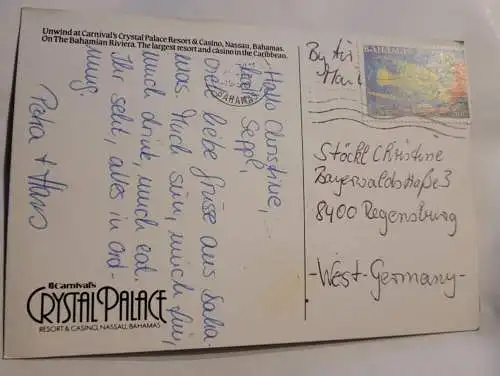 Unwind at Carnival's Crystal Palace Resort & Casino, Nassau, Bahamas.
On The Bahamian Riviera. The largest resort and casino in the Caribbean.
Hallo Christine,
Seppl,
viele liebe Grüse aus Baha-
mas. Much sun, much fun,
much drink, much eat.
Ihr seht, alles in Ord-
nung.
Petra + Hans
Carnival's
CRYSTAL PALACE
RESORT & CASINO, NASSAU, BAHAMAS
By Air
Mail
BAHAMAS
BAHAMAS
Stöckl Christine
Bayerwaldstraße 3
8400 Regensburg
-West-Germany-